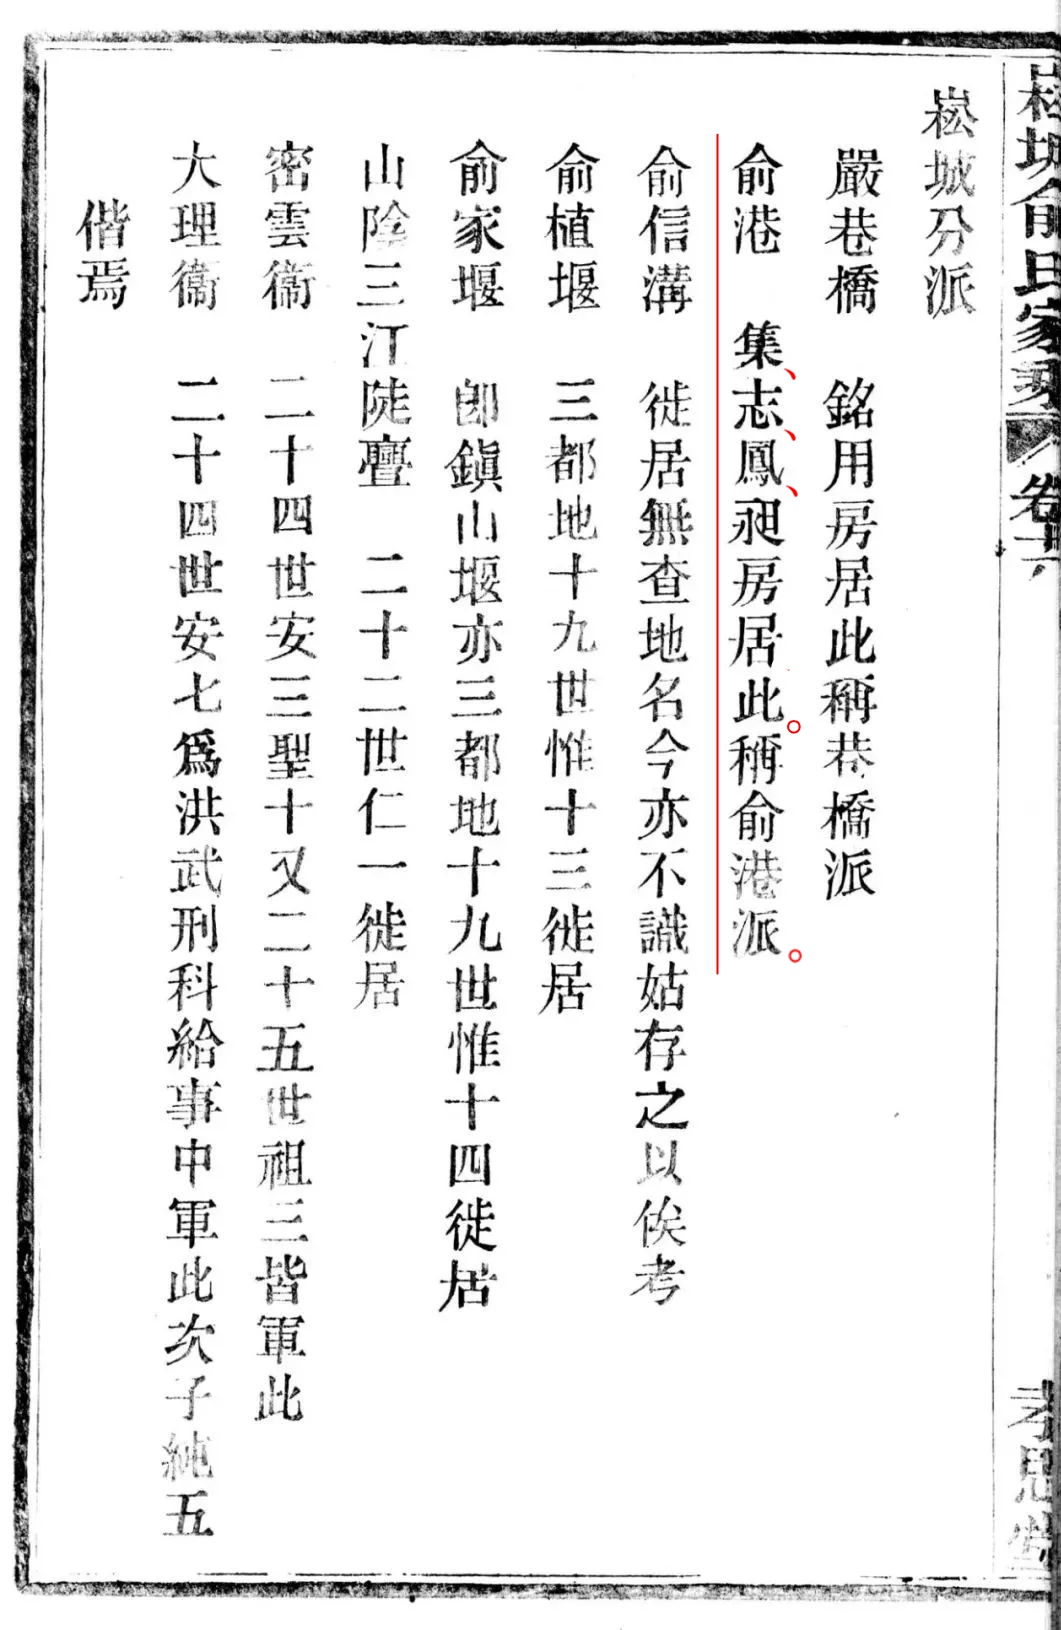 崧城俞氏家乘 卷十六 孝思堂
崧城分派
嚴巷橋 銘用房居此稱巷橋派
俞港 集、志、鳳、昶房居此。稱俞港派。
俞信溝 徙居無查地名今亦不識姑存之以俟考
俞植堰 三都地十九世惟十三徙居
俞家堰 卽鎭山堰亦三都地十九世惟十四徙居
山陰三江陡亹 二十二世仁一徙居
密雲衞 二十四世安三聖十又二十五世祖三皆軍此
大理衞 二十四世安七爲洪武刑科給事中軍此次子純五
偕焉